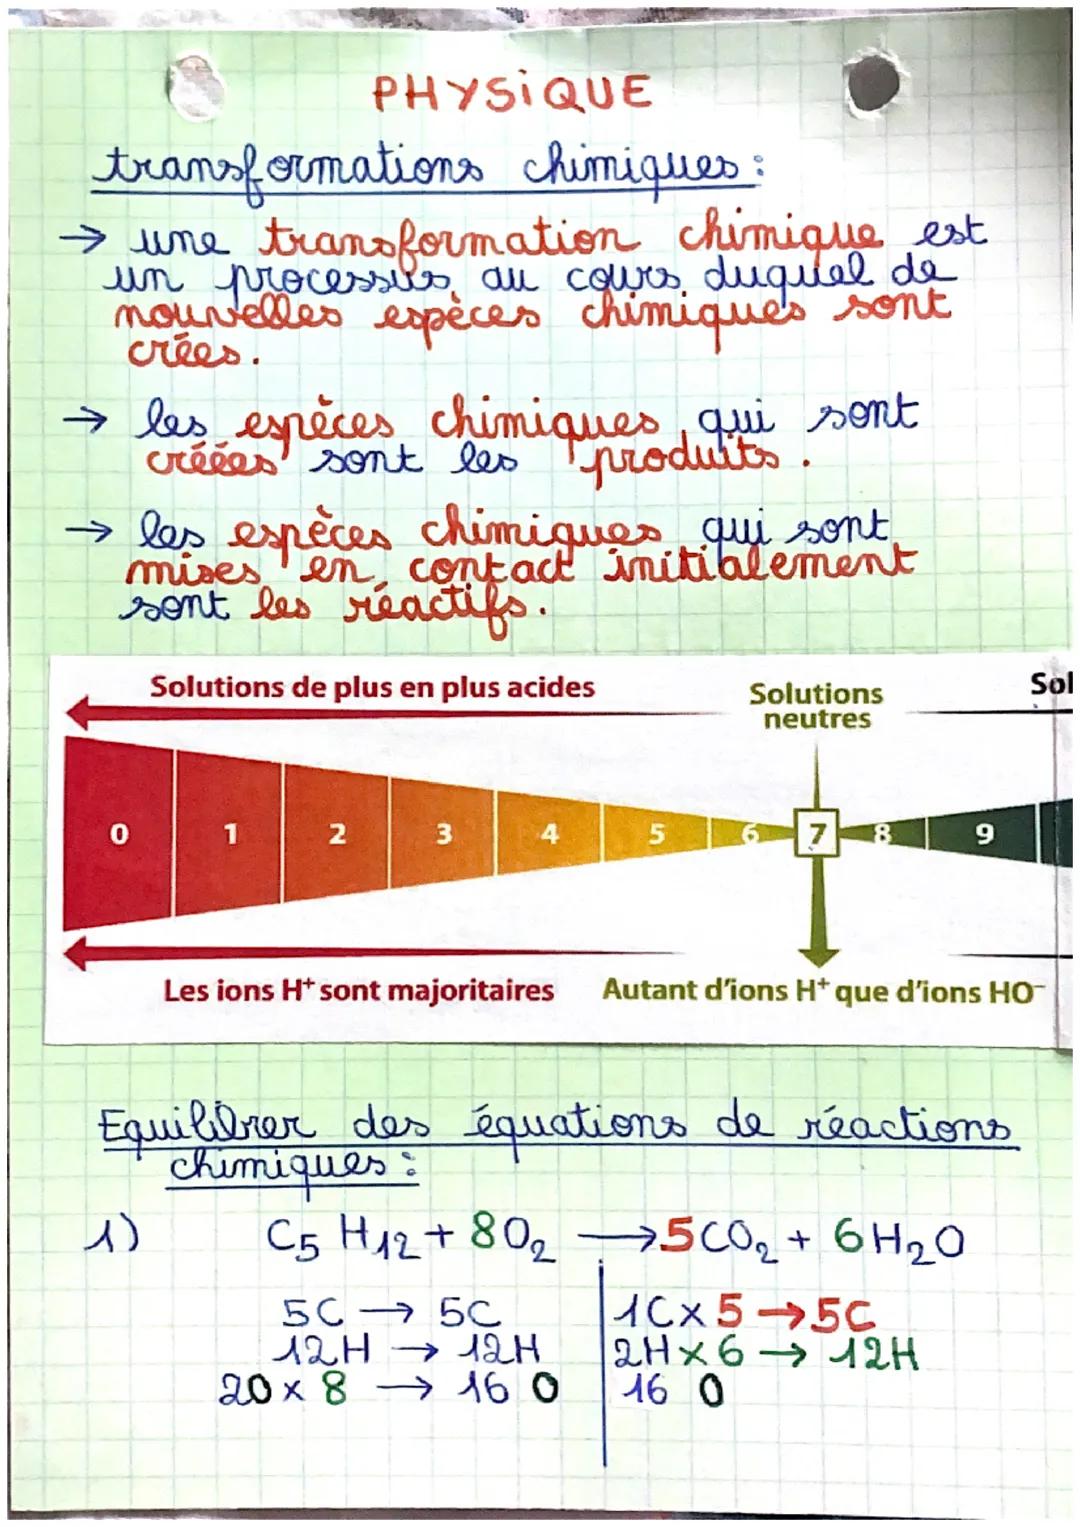 PHYSIQUE
transformations chimiques :
→ une transformation chimique est
un processus au cours duquel de
nouvelles espèces chimiques sont
crées.
→ les espèces chimiques qui sont
créées sont les produits.
→ les espèces chimiques qui sont
mises en contact initialement
sont les réactifs.
Solutions de plus en plus acides
Solutions
neutres
Sol
0 1 2 3 4 5 6 7 8 9
Les ions H⁺ sont majoritaires
Autant d'ions H⁺ que d'ions HO⁻
Equilibrer des équations de réactions
chimiques :
1) C₅ H₁₂ + 8O₂ → 5CO₂ + 6H₂O
5C → 5C | 1C x 5 → 5C
12H → 12H | 2H x 6 → 12H
2O x 8 → 16 O | 16 O